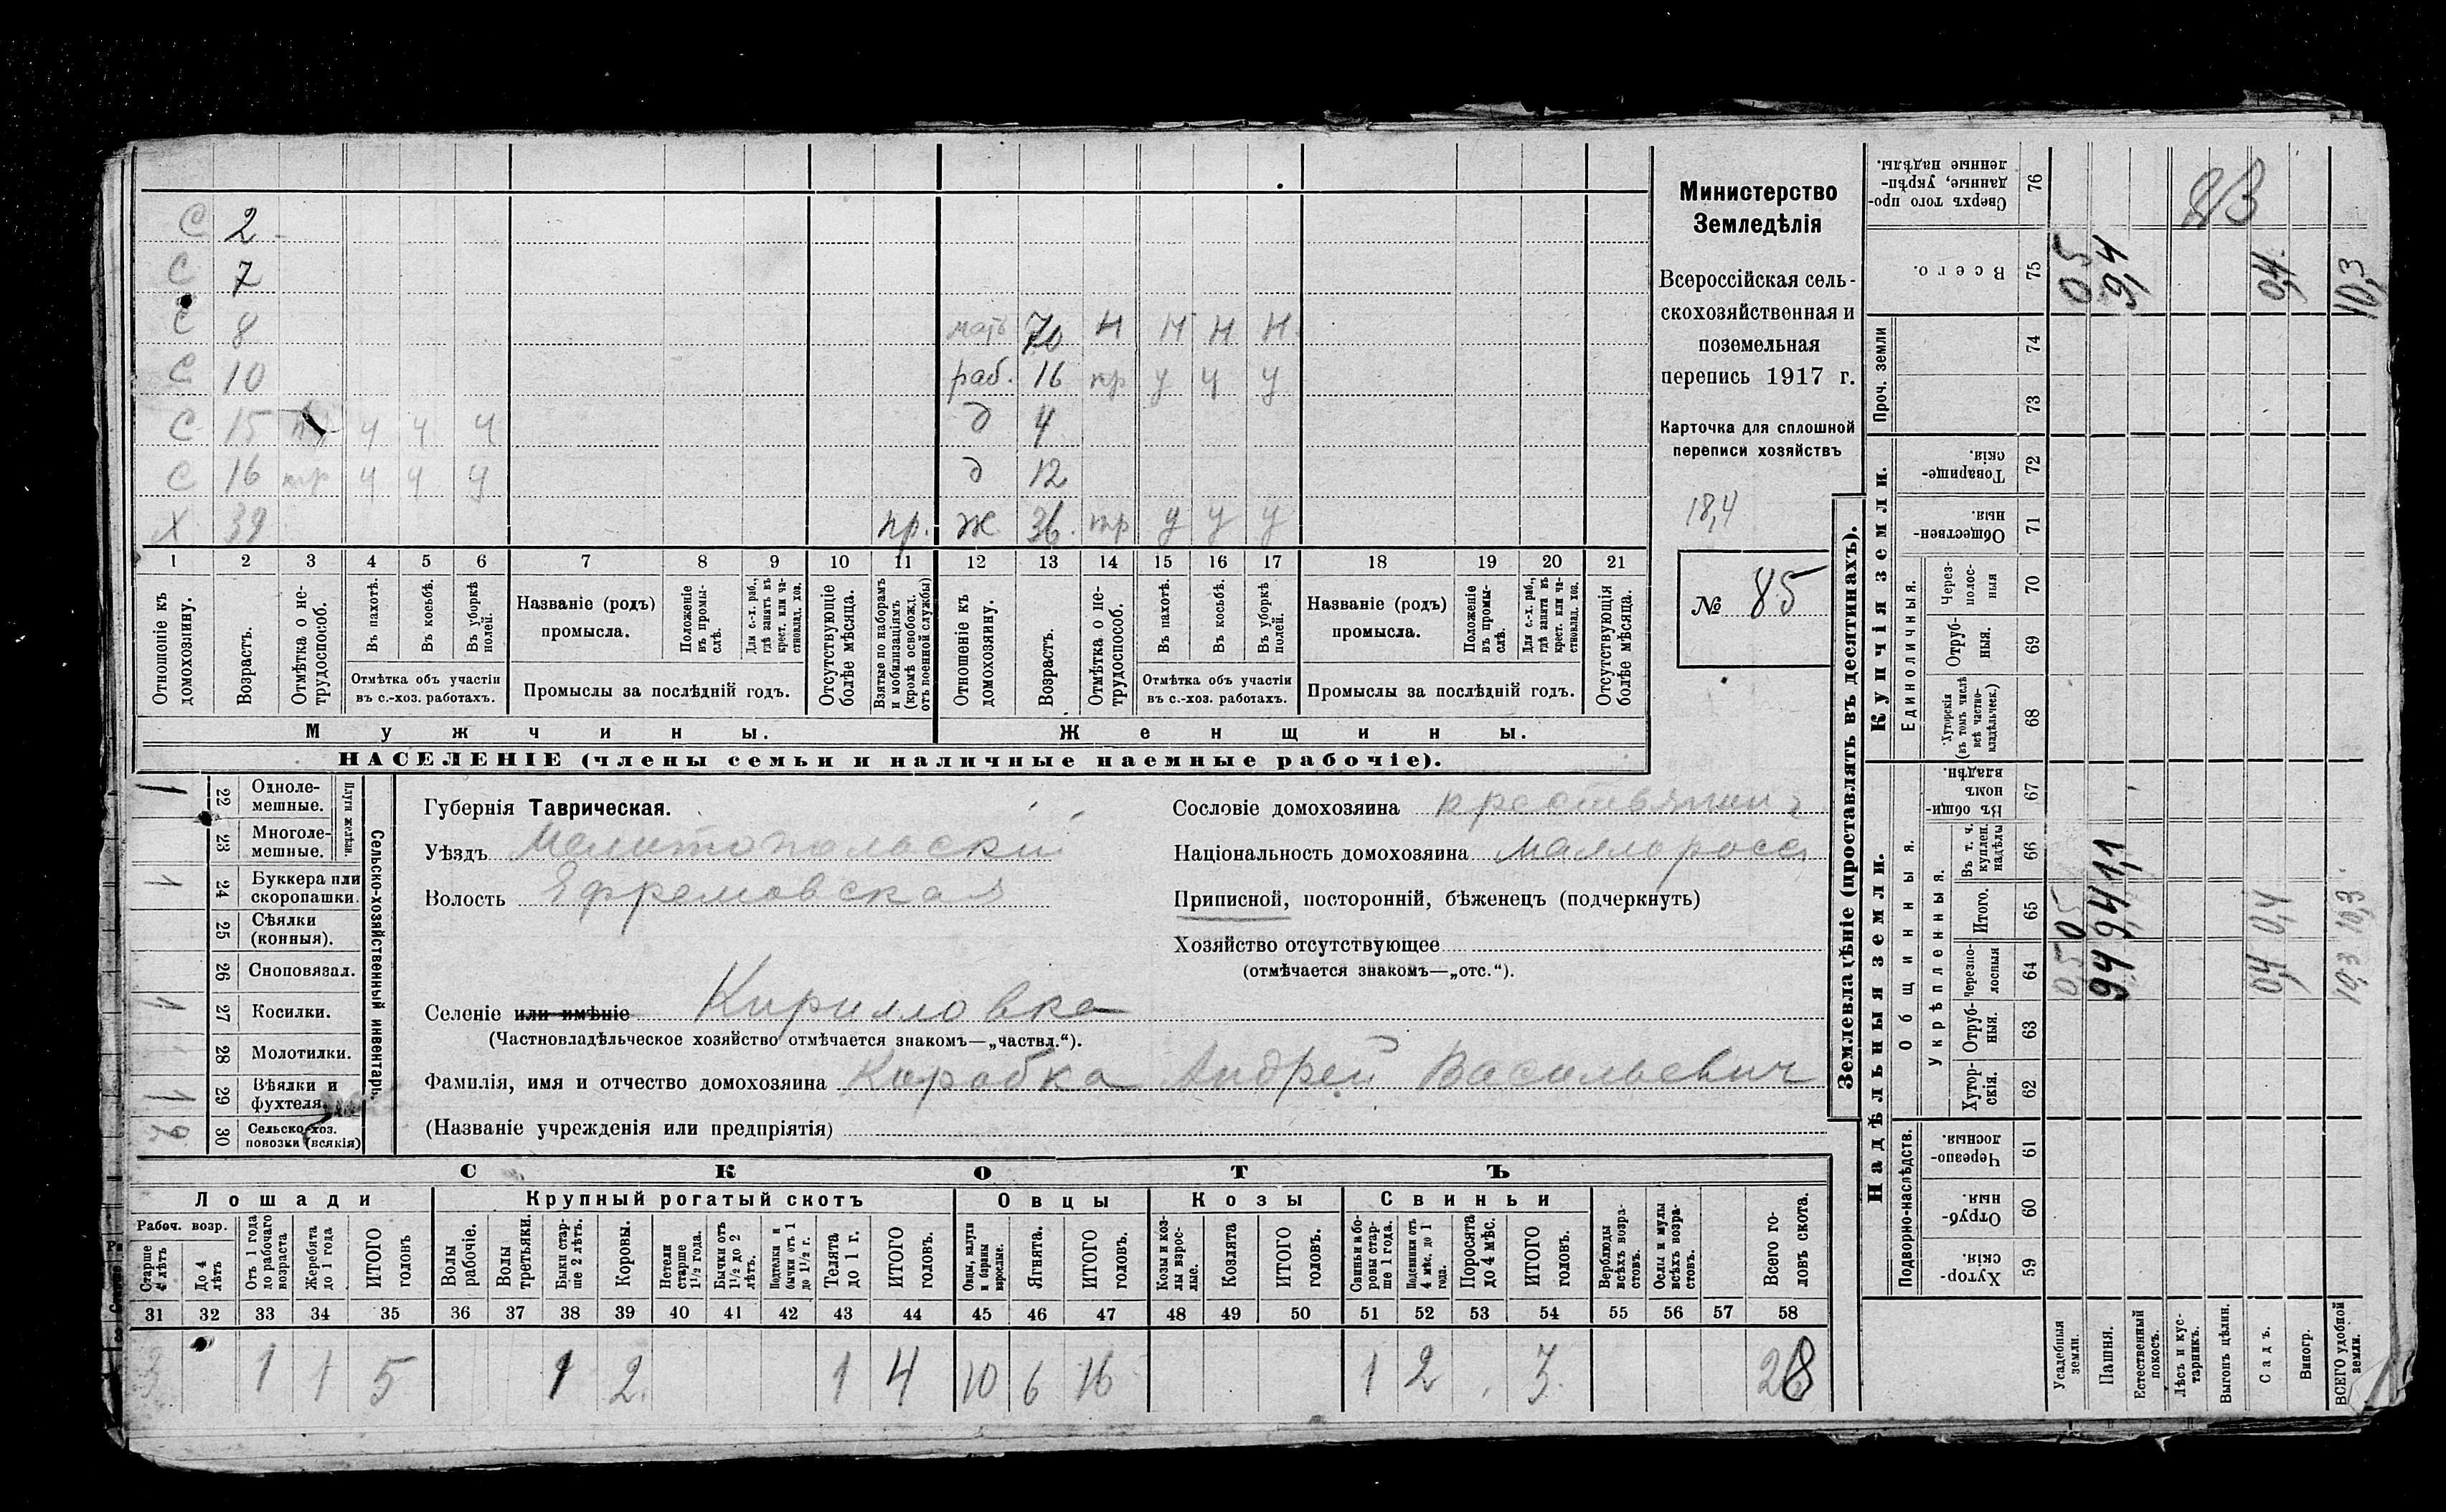 С 2
С 7
С 8 мать 70 н н н н
С 10 раб. 16 пр у у у
С 15 у у у д 4
С 16 пр у у у д 12
Х 39 пр. ж 36 пр у у у
1 2 3 4 5 6 7 8 9 10 11 12 13 14 15 16 17 18 19 20 21
Отношеніе къ домохозяину.
Возрастъ.
Отмѣтка о не-трудоспособ.
Въ пахотѣ.
Въ косьбѣ.
Въ уборкѣ полей.
Отмѣтка объ участіи
въ с.-хоз. работахъ.
Названіе (родъ)
промысла.
Положеніе въ промы-слѣ.
Для с.-х. раб., гдѣ занятъ въ крест. или ча-стновлад. хоз.
Промыслы за послѣдній годъ.
Отсутствующіе болѣе мѣсяца.
Взятые по наборамъ и мобилизаціямъ (кромѣ освобожд. отъ военной службы)
Отношеніе къ домохозяину.
Возрастъ.
Отмѣтка о не-трудоспособ.
Въ пахотѣ.
Въ косьбѣ.
Въ уборкѣ полей.
Отмѣтка объ участіи
въ с.-хоз. работахъ.
Названіе (родъ)
промысла.
Положеніе въ промы-слѣ.
Для с.-х. раб., гдѣ занята въ крест. или ча-стновлад. хоз.
Промыслы за послѣдній годъ.
Отсутствующія болѣе мѣсяца.
Мужчины. Женщины.
НАСЕЛЕНІЕ (члены семьи и наличные наемные рабочіе).
Министерство
Земледѣлія
Всероссійская сель-
скохозяйственная и
поземельная
перепись 1917 г.
Карточка для сплошной
переписи хозяйствъ
18,4
№ 85
Сельско-хозяйственный инвентарь.
Плуги желѣзн.
1 22 Одноле-мешные.
23 Многоле-мешные.
1 24 Буккера или скоропашки.
25 Сѣялки (конныя).
26 Сноповязал.
1 27 Косилки.
28 Молотилки.
1 29 Вѣялки и фухтеля.
30 Сельско-хоз. повозки (всякія)
Губернія Таврическая.
Уѣздъ Мелитопольскій
Волость Ефремовская
Сословіе домохозяина крестьянинъ
Національность домохозяина малоросс
Приписной, посторонній, бѣженецъ (подчеркнуть)
Хозяйство отсутствующее
(отмѣчается знакомъ—„отс.“).
Селеніе или имѣніе Кирилловка
(Частновладѣльческое хозяйство отмѣчается знакомъ—„частвл.“).
Фамилія, имя и отчество домохозяина Коробка Андрей Васильевич
(Названіе учрежденія или предпріятія)
СКОТЪ
Лошади Крупный рогатый скотъ Овцы Козы Свиньи
Рабоч. возр.
Старше 4 лѣтъ
До 4 лѣтъ
Отъ 1 года до рабочаго возраста
Жеребята до 1 года
ИТОГО головъ
Волы рабочіе.
Волы третьяки.
Быки стар-ше 2 лѣтъ.
Коровы.
Нетели старше 1½ года.
Бычки отъ 1½ до 2 лѣтъ.
Подтелки и бычки отъ 1 до 1½ г.
Телята до 1 г.
ИТОГО головъ.
Овцы, валухи и бараны взрослые.
Ягнята.
ИТОГО головъ.
Козы и коз-лы взрос-лые.
Козлята
ИТОГО головъ.
Свиньи и бо-ровы стар-ше 1 года.
Подсвинки отъ 4 мѣс. до 1 года.
Поросята до 4 мѣс.
ИТОГО головъ.
Верблюды всѣхъ возра-стовъ.
Ослы и мулы всѣхъ возра-стовъ.
Всего го-ловъ скота.
31 32 33 34 35 36 37 38 39 40 41 42 43 44 45 46 47 48 49 50 51 52 53 54 55 56 57 58
3 1 1 5 1 2 1 4 10 6 16 1 2 3 28
Землевладѣніе (проставлять въ десятинахъ).
Купчія земли.
Надѣльныя земли.
Проч. земли
Единоличныя.
Общинныя.
Укрѣпленныя.
Подворно-наслѣдств.
Сверхъ того про-данные, укрѣп-ленные надѣлы. 76
Всего. 75 0,5 9,4 0,4 10,3
74
73
Товарище-скія. 72
Обществен-ныя. 71
Через-полос-ныя 70
Отруб-ныя. 69
Хуторскія (въ томъ числѣ всѣ частно-владѣльческ.) 68
Въ общин-номъ владѣн. 67
Въ т. ч. куплен. надѣлы 66 1,1
Итого. 65 0,5 9,4 0,4 10,3
Черезпо-лосныя 64 0,5 9,4 0,4 10,3
Отруб-ныя. 63
Хутор-скія. 62
Черезпо-лосныя. 61
Отруб-ныя. 60
Хутор-скія. 59
Усадебныя земли.
Пашня.
Естественный покосъ.
Лѣсъ и кус-тарникъ.
Выгонъ цѣлин.
Садъ.
Виногр.
ВСЕГО удобной земли.